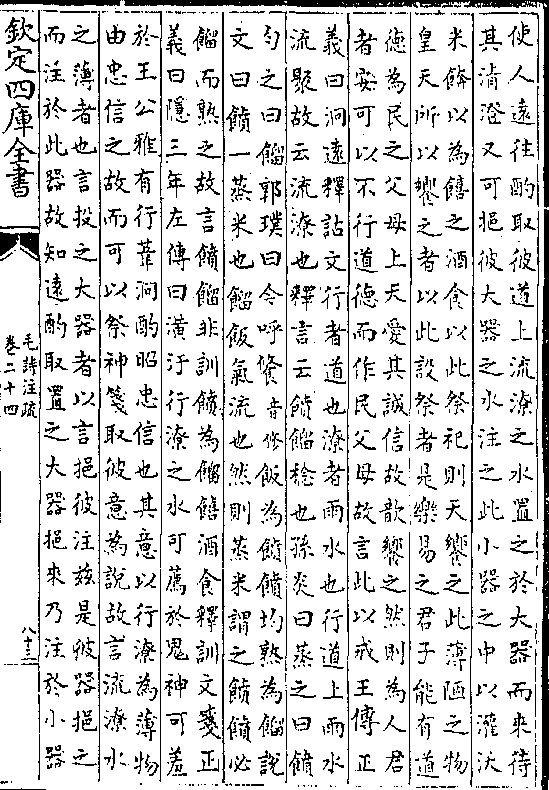 使人遠往酌取彼道上流潦之水置之於大器而來待
其清澄又可挹彼大器之水注之此小器之中以灌沃
米餴以為饎之酒食以此祭祀則天饗之此薄陋之物
皇天所以饗之者以此設祭者是樂易之君子能有道
德為民之父母上天愛其誠信故歆饗之然則為人君
者安可以不行道德而作民父母故言此以戒王傳正
義曰泂遠釋詁文行者道也潦者雨水也行道上雨水
流聚故云流潦也釋言云饙餾稔也孫炎曰蒸之曰饙
勻之曰餾郭璞曰今呼䬧音脩飯為饙饙均熟為餾說
文曰饙一蒸米也餾飯氣流也然則蒸米謂之饙饙必
餾而熟之故言饙餾非訓饙為餾饎酒食釋訓文箋正
義曰隱三年左傳曰潢汙行潦之水可薦於鬼神可羞
於王公雅有行葦泂酌昭忠信也其意以行潦為薄物
由忠信之故而可以祭神箋取彼意為說故言流潦水
之薄者也言投之大器者以言挹彼注茲是彼器挹之
而注於此器故知遠酌取置之大器挹來乃注於小器
欽定四庫全書
毛詩注疏
卷二十四
八十三